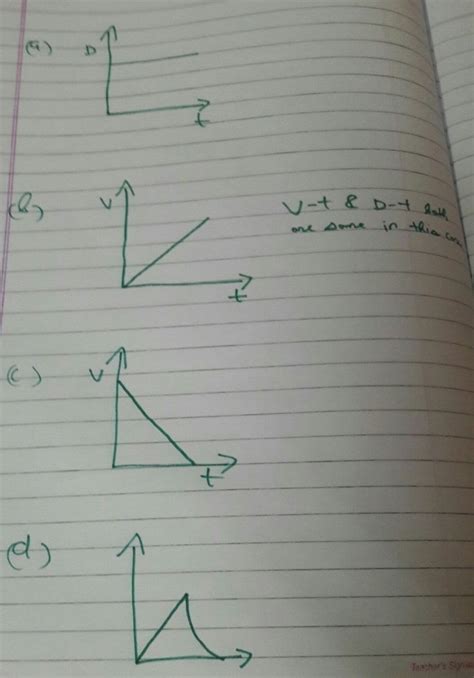 (a) D
t
(b) V
V-t & D-t both
are same in this case
t
(c) V
t
(d)
Teacher's Signat